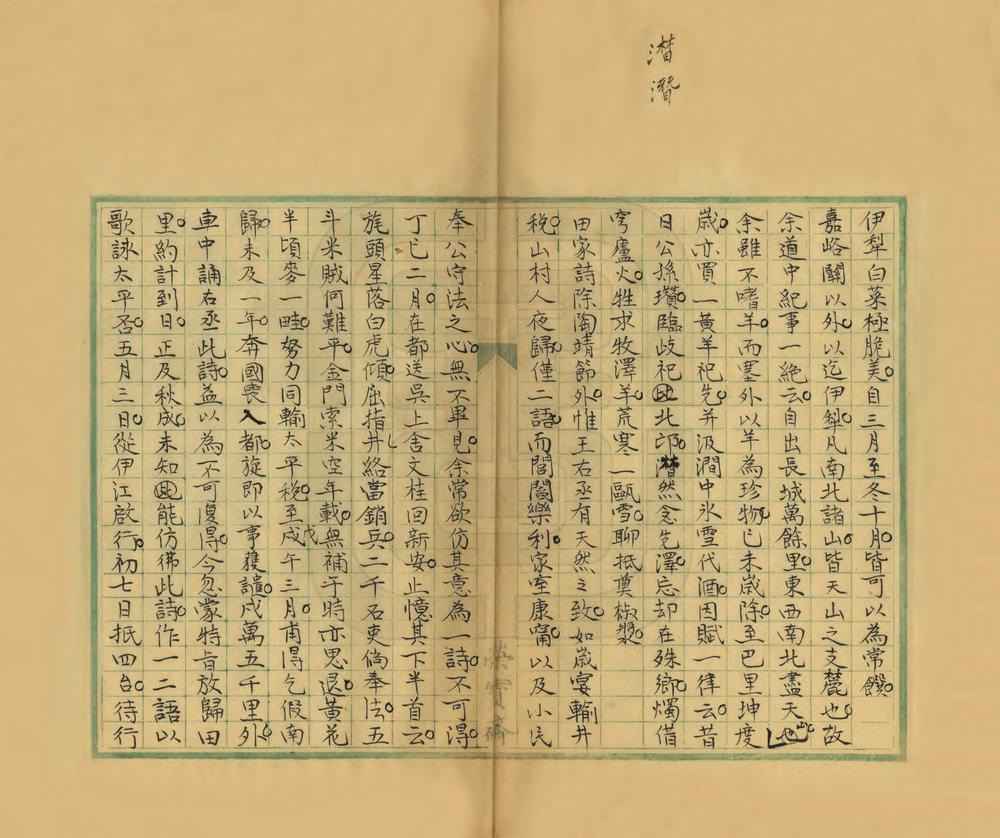 潛
潛
伊犁白菜極脆美自三月至冬十月皆可以為常饌
嘉峪關以外以迄伊犁凡南北諸山皆天山之支麓也故
余道中紀事一絕云自出長城萬餘里東西南北盡天山
余雖不嗜羊而塞外以羊為珍物已未歲除至巴里坤度
歲亦買一黃羊祀先并汲澗中氷雪代酒因賦一律云昔
日公孫瓚臨歧祀北邙潛然念先澤忘却在殊鄉燭借
穹廬火牲求牧澤羊荒寒一甌雪聊抵奠椒漿
田家詩除陶靖節外惟王右丞有天然之致如歲宴輸井
稅山村人夜歸僅二語而閭閻樂利家室康甯以及小民
奉公守法之心無不畢見余常欲仿其意為一詩不可得
丁巳二月在都送吳上舍文桂回新安止憶其下半首云
旄頭星落白虎傾屈指井絡當銷兵二千石吏倘奉法五
斗米賊何難平金門索米空年載無補于時亦思退黃花
半頃麥一畦努力同輸太平稅至戊午三月甫得乞假南
歸未及一年奔國喪入都旋即以事獲譴戍萬五千里外
車中誦右丞此詩益以為不可復得今忽蒙特旨放歸田
里約計到日正及秋成未知能仿彿此詩作一二語以
歌詠太平否五月三日從伊江啟行初七日抵四台待行
榮寶齋